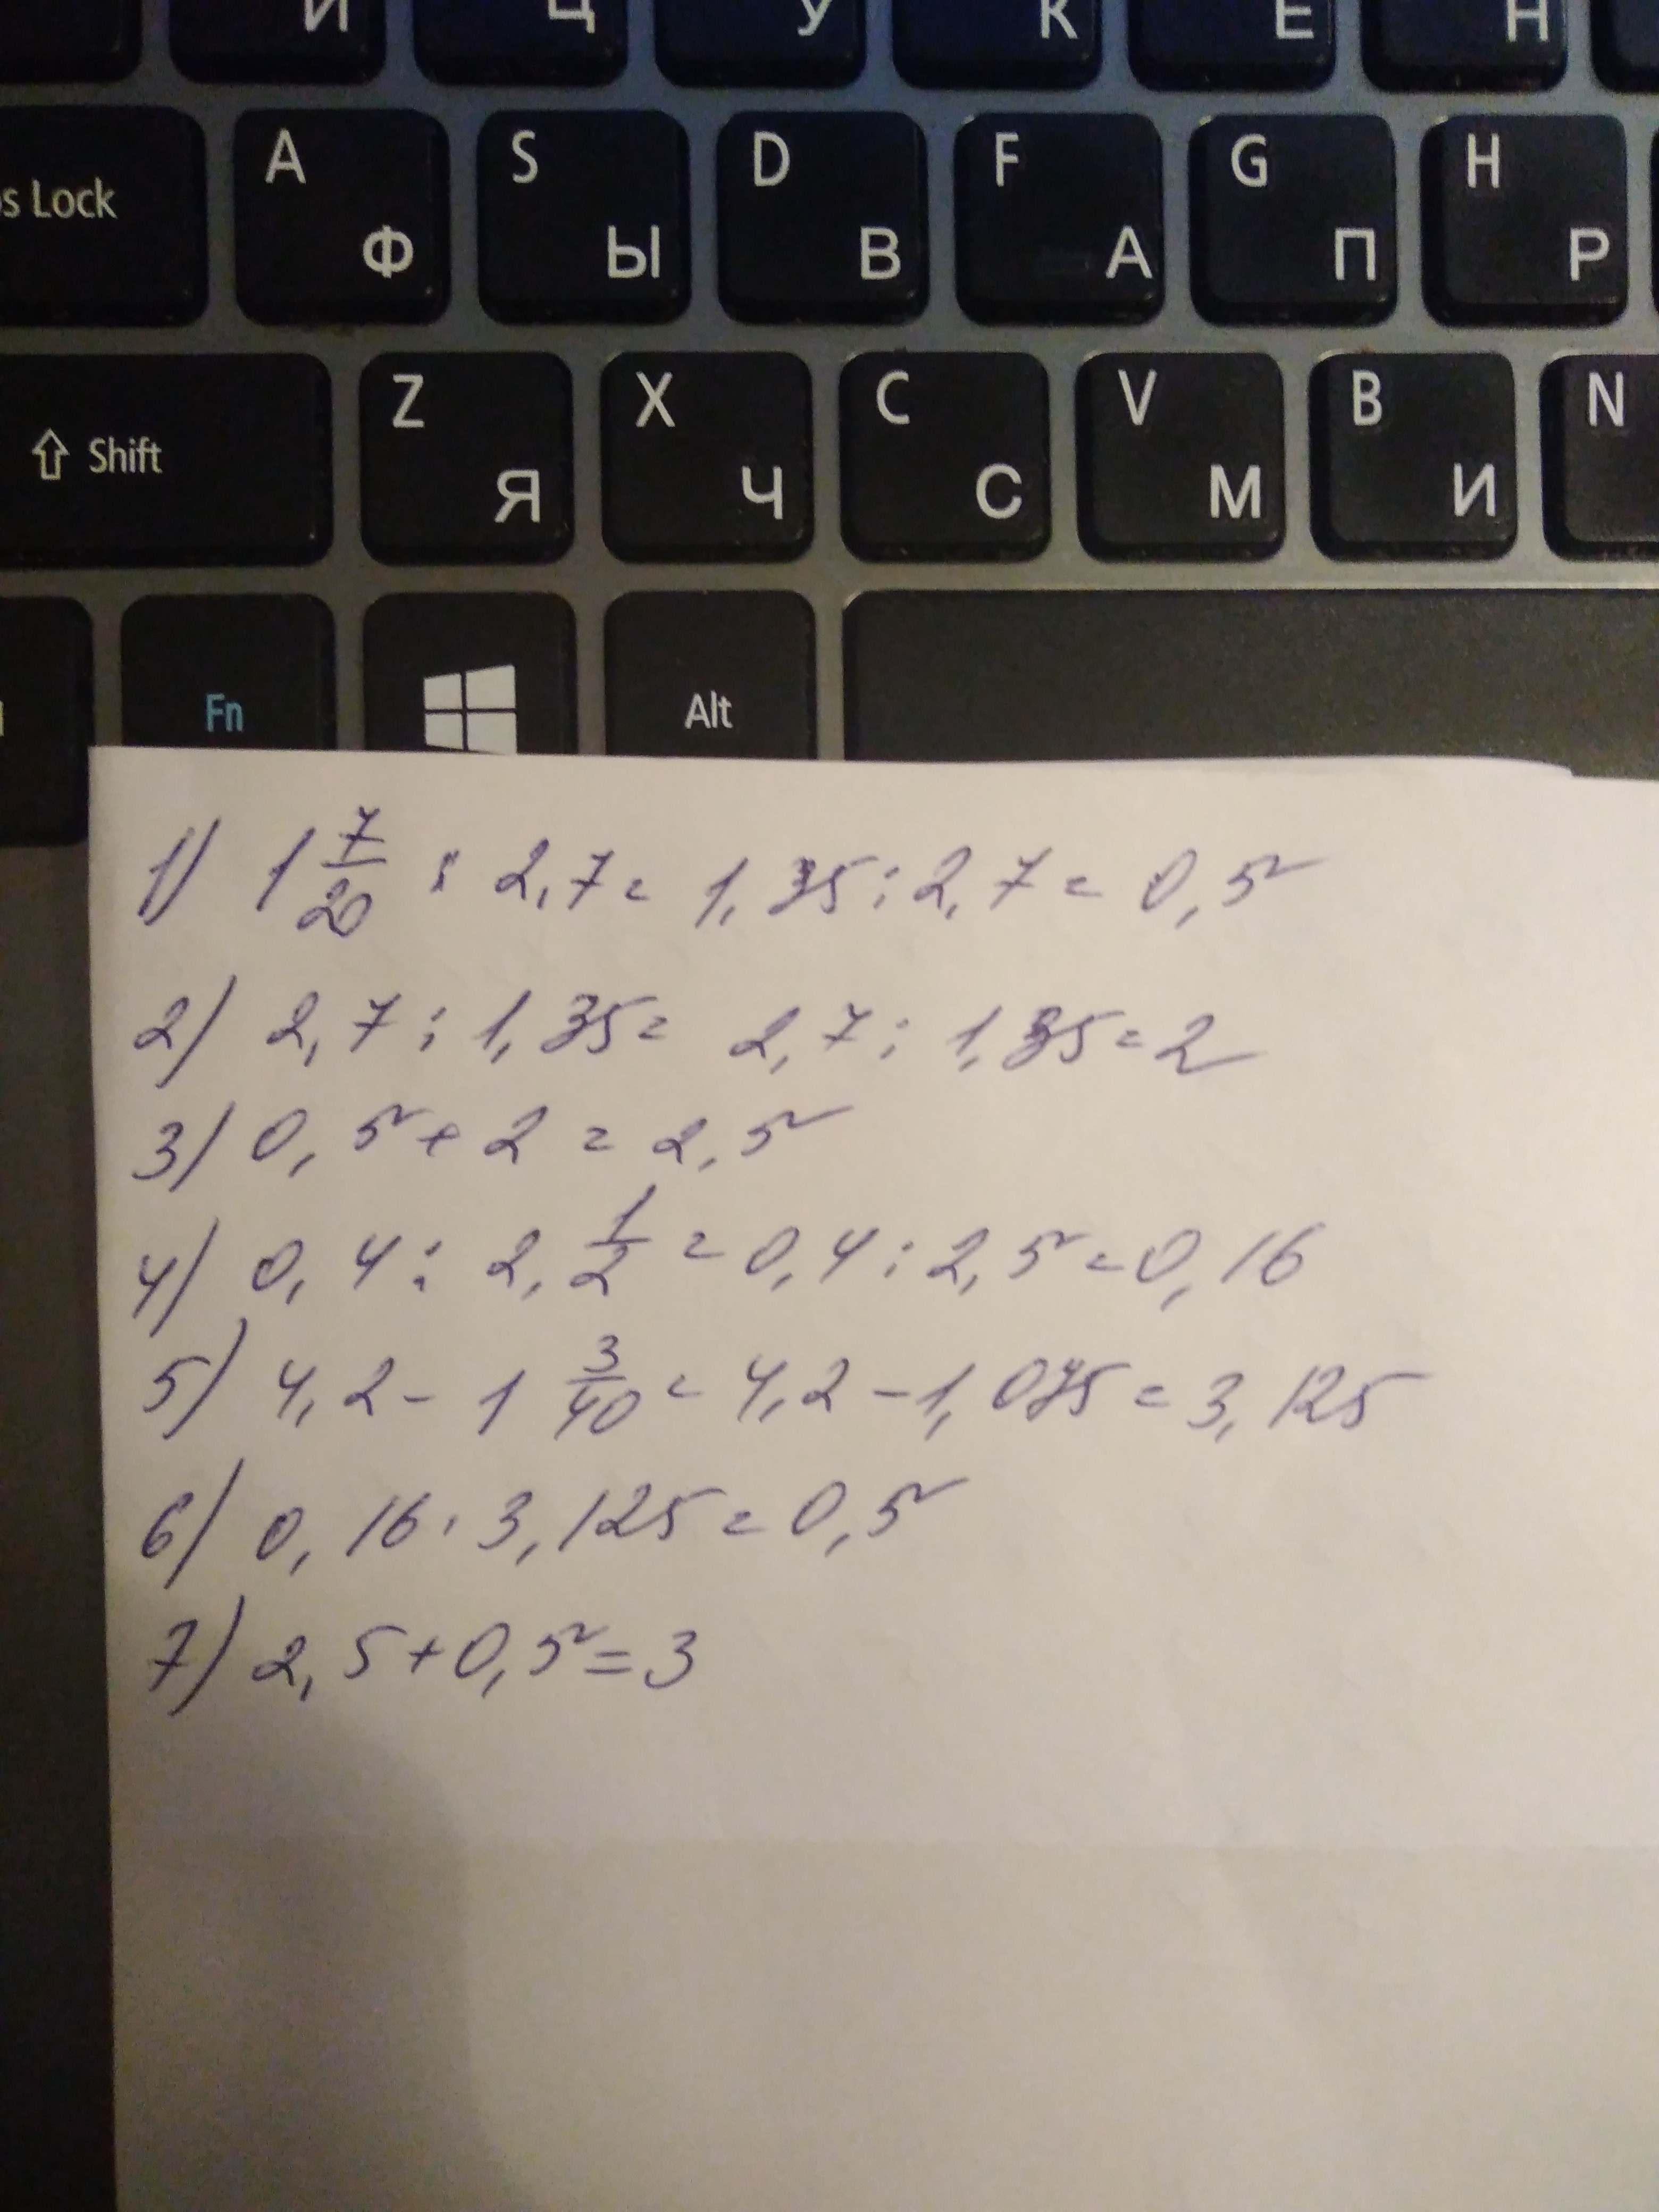 Й Ц У К Е Н
s Lock A Ф S Ы D В F А G П H Р
⇧ Shift Z Я X Ч C С V М B И N
Fn Alt
1) 1 7/20 : 2,7 = 1,35 : 2,7 = 0,5
2) 2,7 : 1,35 = 2,7 : 1,35 = 2
3) 0,5 + 2 = 2,5
4) 0,4 : 2, 1/2 = 0,4 : 2,5 = 0,16
5) 4,2 - 1 3/40 = 4,2 - 1,075 = 3,125
6) 0,16 · 3,125 = 0,5
7) 2,5 + 0,5 = 3